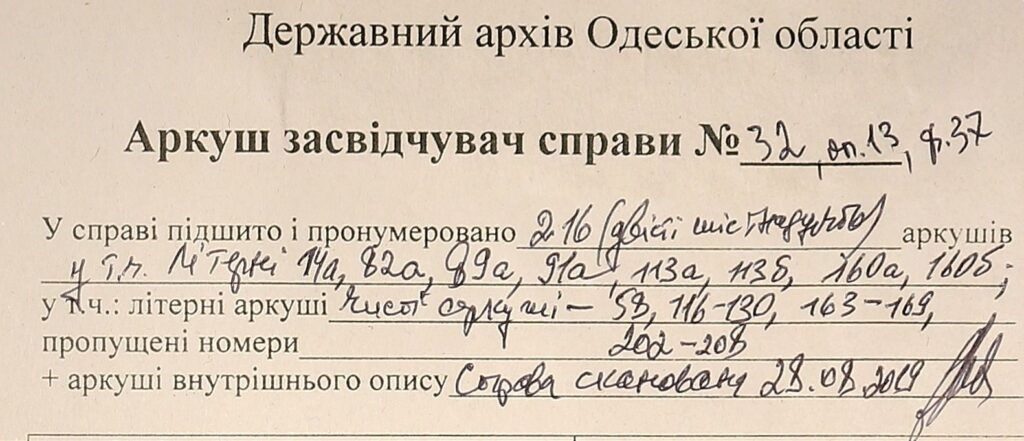 Державний архів Одеської області
Аркуш засвідчувач справи № 32, оп. 13, ф. 37
У справі підшито і пронумеровано 216 (двісті шістнадцять) аркушів
у т.ч. літерні 14а, 82а, 89а, 91а, 113а, 113б, 160а, 160б;
у т.ч.: літерні аркуші чисті аркуші – 58, 116-130, 163-169,
пропущені номери 202-208
+ аркуші внутрішнього опису Справа сканована 28.08.2019